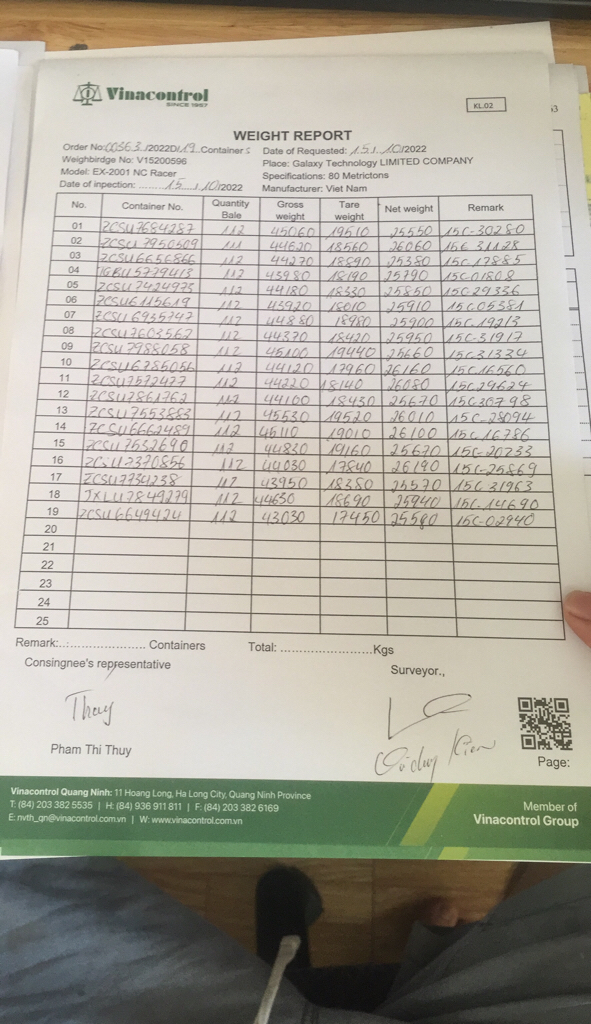 Vinacontrol
SINCE 1957
KL.02
53
WEIGHT REPORT
Order No: 00363 /2022D/19 Containers Date of Requested: 15 / 10/2022
Weighbirdge No: V15200596 Place: Galaxy Technology LIMITED COMPANY
Model: EX-2001 NC Racer Specifications: 80 Metrictons
Date of inpection: ......... 15 / 10/2022 Manufacturer: Viet Nam
No. Container No. Quantity Bale Gross weight Tare weight Net weight Remark
01 ZCSU7684287 112 45060 19510 25550 15C-30280
02 ZCSU7950509 112 44620 18560 26060 15C 31128
03 ZCSU6656866 112 44270 18890 25380 15C-17885
04 112 43980 18190 25790 15C01808
05 ZCSU7424975 112 44180 18330 25850 15C29336
06 ZCSU6115619 112 43920 18010 25910 15C05381
07 ZCSU6935747 112 44880 18980 25900 15C-19213
08 ZCSU7603562 112 44370 18420 25950 15C-31917
09 ZCSU7988058 112 45100 19440 25660 15C31334
10 ZCSU6785056 112 44120 17960 26160 15C16560
11 ZCSU7572477 112 44220 18140 26080 15C29624
12 ZCSU7861762 112 44100 18430 25670 15C30798
13 ZCSU7553883 112 45530 19520 26010 15C-28094
14 ZCSU6662489 112 45110 19010 26100 15C16786
15 ZCSU7532690 112 44830 19160 25670 15C-20233
16 112 44030 17840 26190 15C-25869
17 ZCSU7734238 112 43950 18380 25570 15C31963
18 JXLU7849279 112 44630 18690 25940 15C-14690
19 ZCSU6649424 112 43030 17450 25580 15C-02940
20
21
22
23
24
25
Remark:..:...................... Containers Total: .........................Kgs
Consingnee's representative Surveyor.,
Thuy
Pham Thi Thuy
Page:
Vinacontrol Quang Ninh: 11 Hoang Long, Ha Long City, Quang Ninh Province
T: (84) 203 382 5535 | H: (84) 936 911 811 | F: (84) 203 382 6169
E: nvth_qn@vinacontrol.com.vn | W: www.vinacontrol.com.vn
Member of
Vinacontrol Group